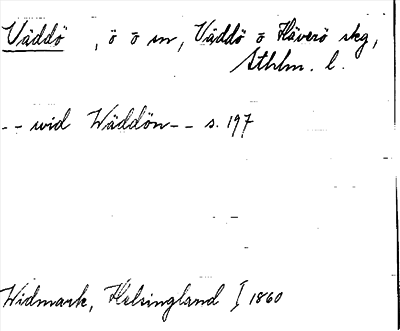 Väddö , ö o sn, Väddö o Häverö skg,
Sthlm. l.
-- wid Wäddön -- s. 197
Widmark, Helsingland I 1860